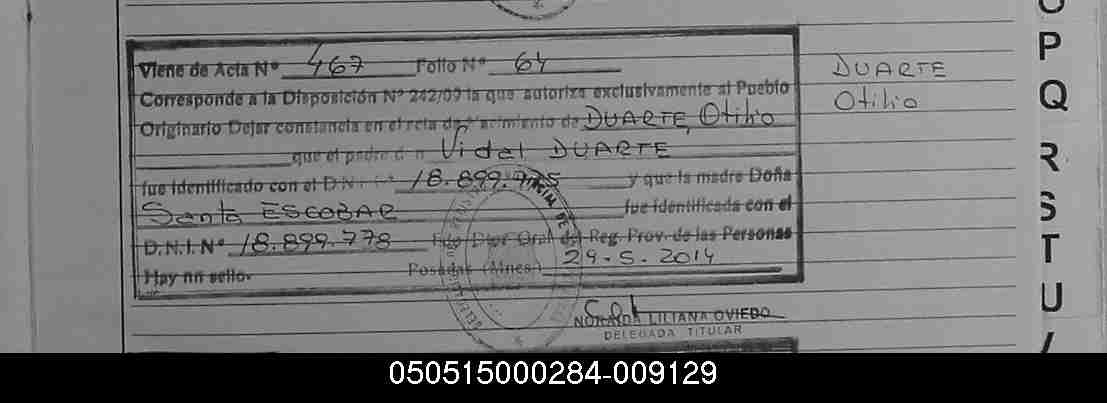 Viene de Acta Nº 467 Folio Nº 64
Corresponde a la Disposición Nº 242/09 la que autoriza exclusivamente al Pueblo
Originario Dejar constancia en el acta de Nacimiento de DUARTE, Otilio
que el padre don Vidal DUARTE
fue identificado con el D.N.I. Nº 18.899.775 y que la madre Doña
Santa ESCOBAR fue identificada con el
D.N.I. Nº 18.899.778 Fdo Dtor Gral del Reg. Prov. de las Personas
Hay un sello. Posadas (Mnes) 29-5-2014
DUARTE
Otilio
NORAIDA LILIANA OVIEDO
DELEGADA TITULAR
O
P
Q
R
S
T
U
050515000284-009129